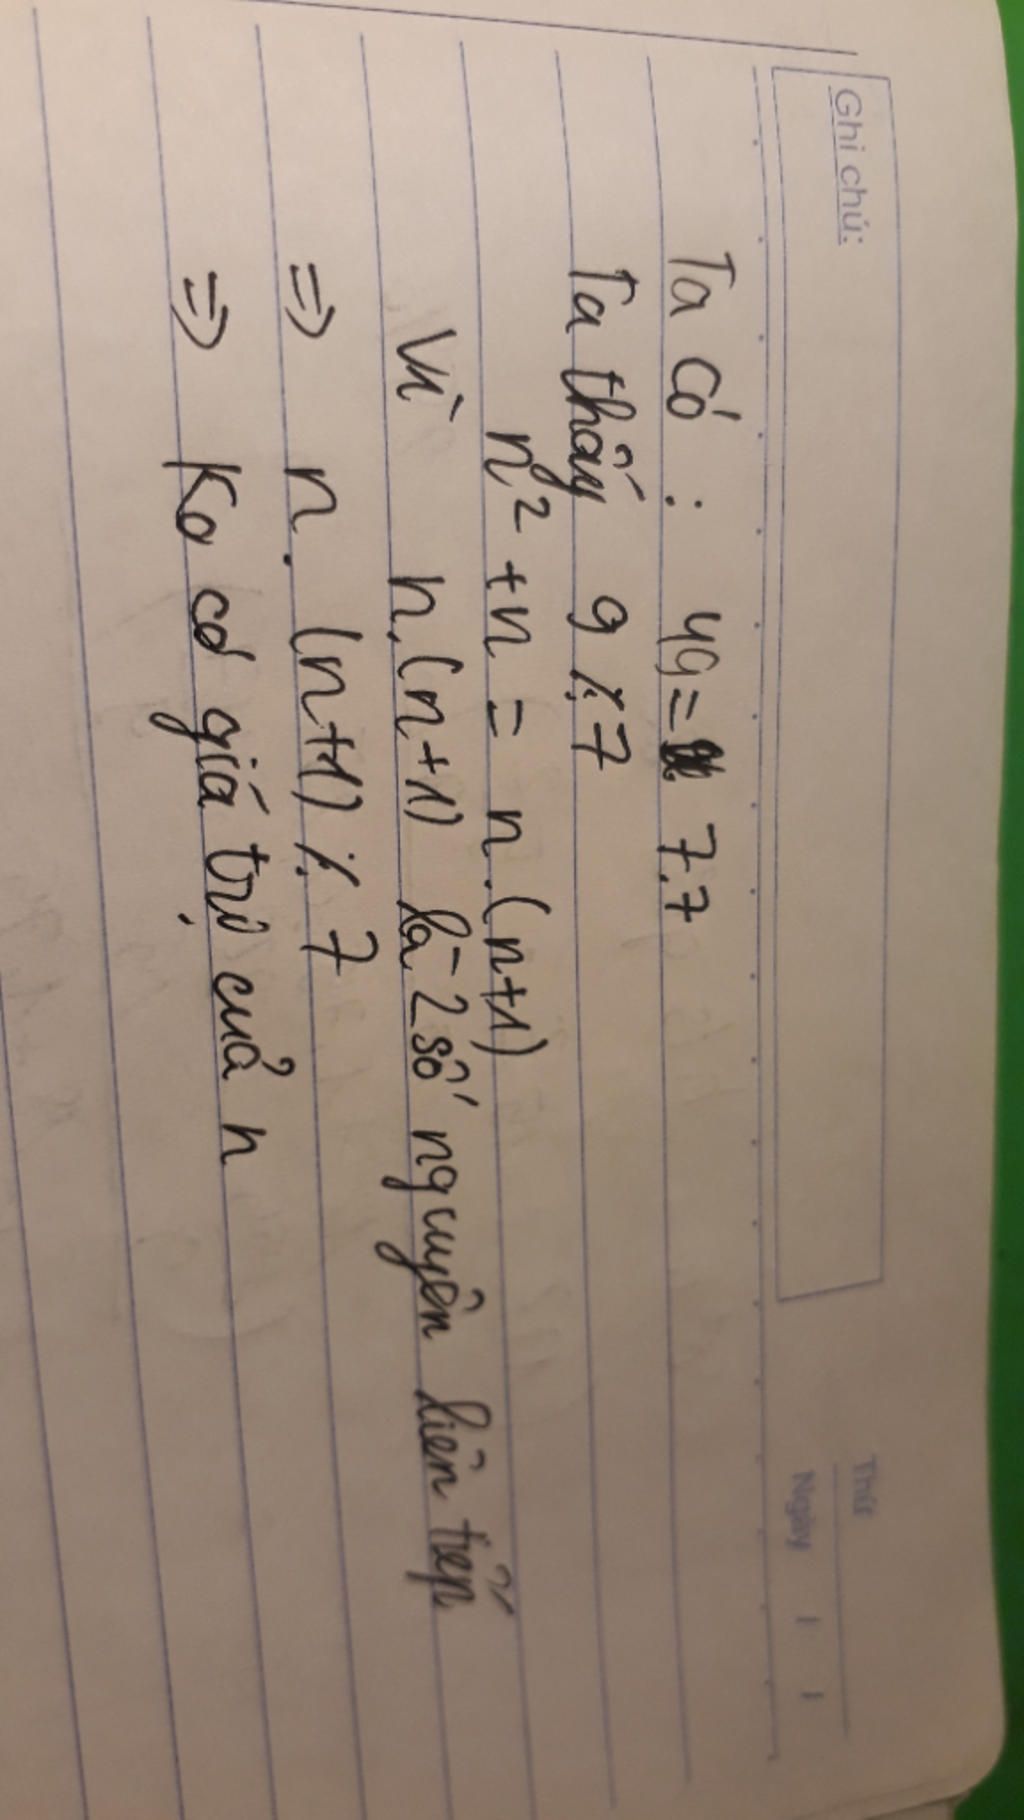 Ghi chú:
Thứ
Ngày / /
Ta có : 49 = 7.7
Ta thấy 9 ⋮̸ 7
n² + n = n.(n+1)
Vì n.(n+1) là 2 số nguyên liên tiếp
⇒ n.(n+1) ⋮̸ 7
⇒ Ko có giá trị của n